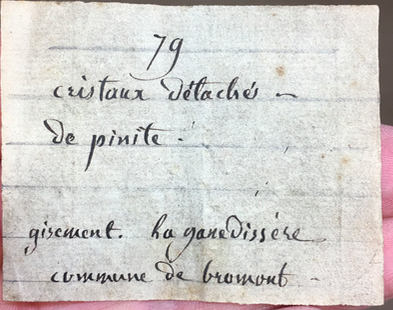 79
cristaux détachés -
de pinite.
gisement. la ganedissère
commune de bromont -